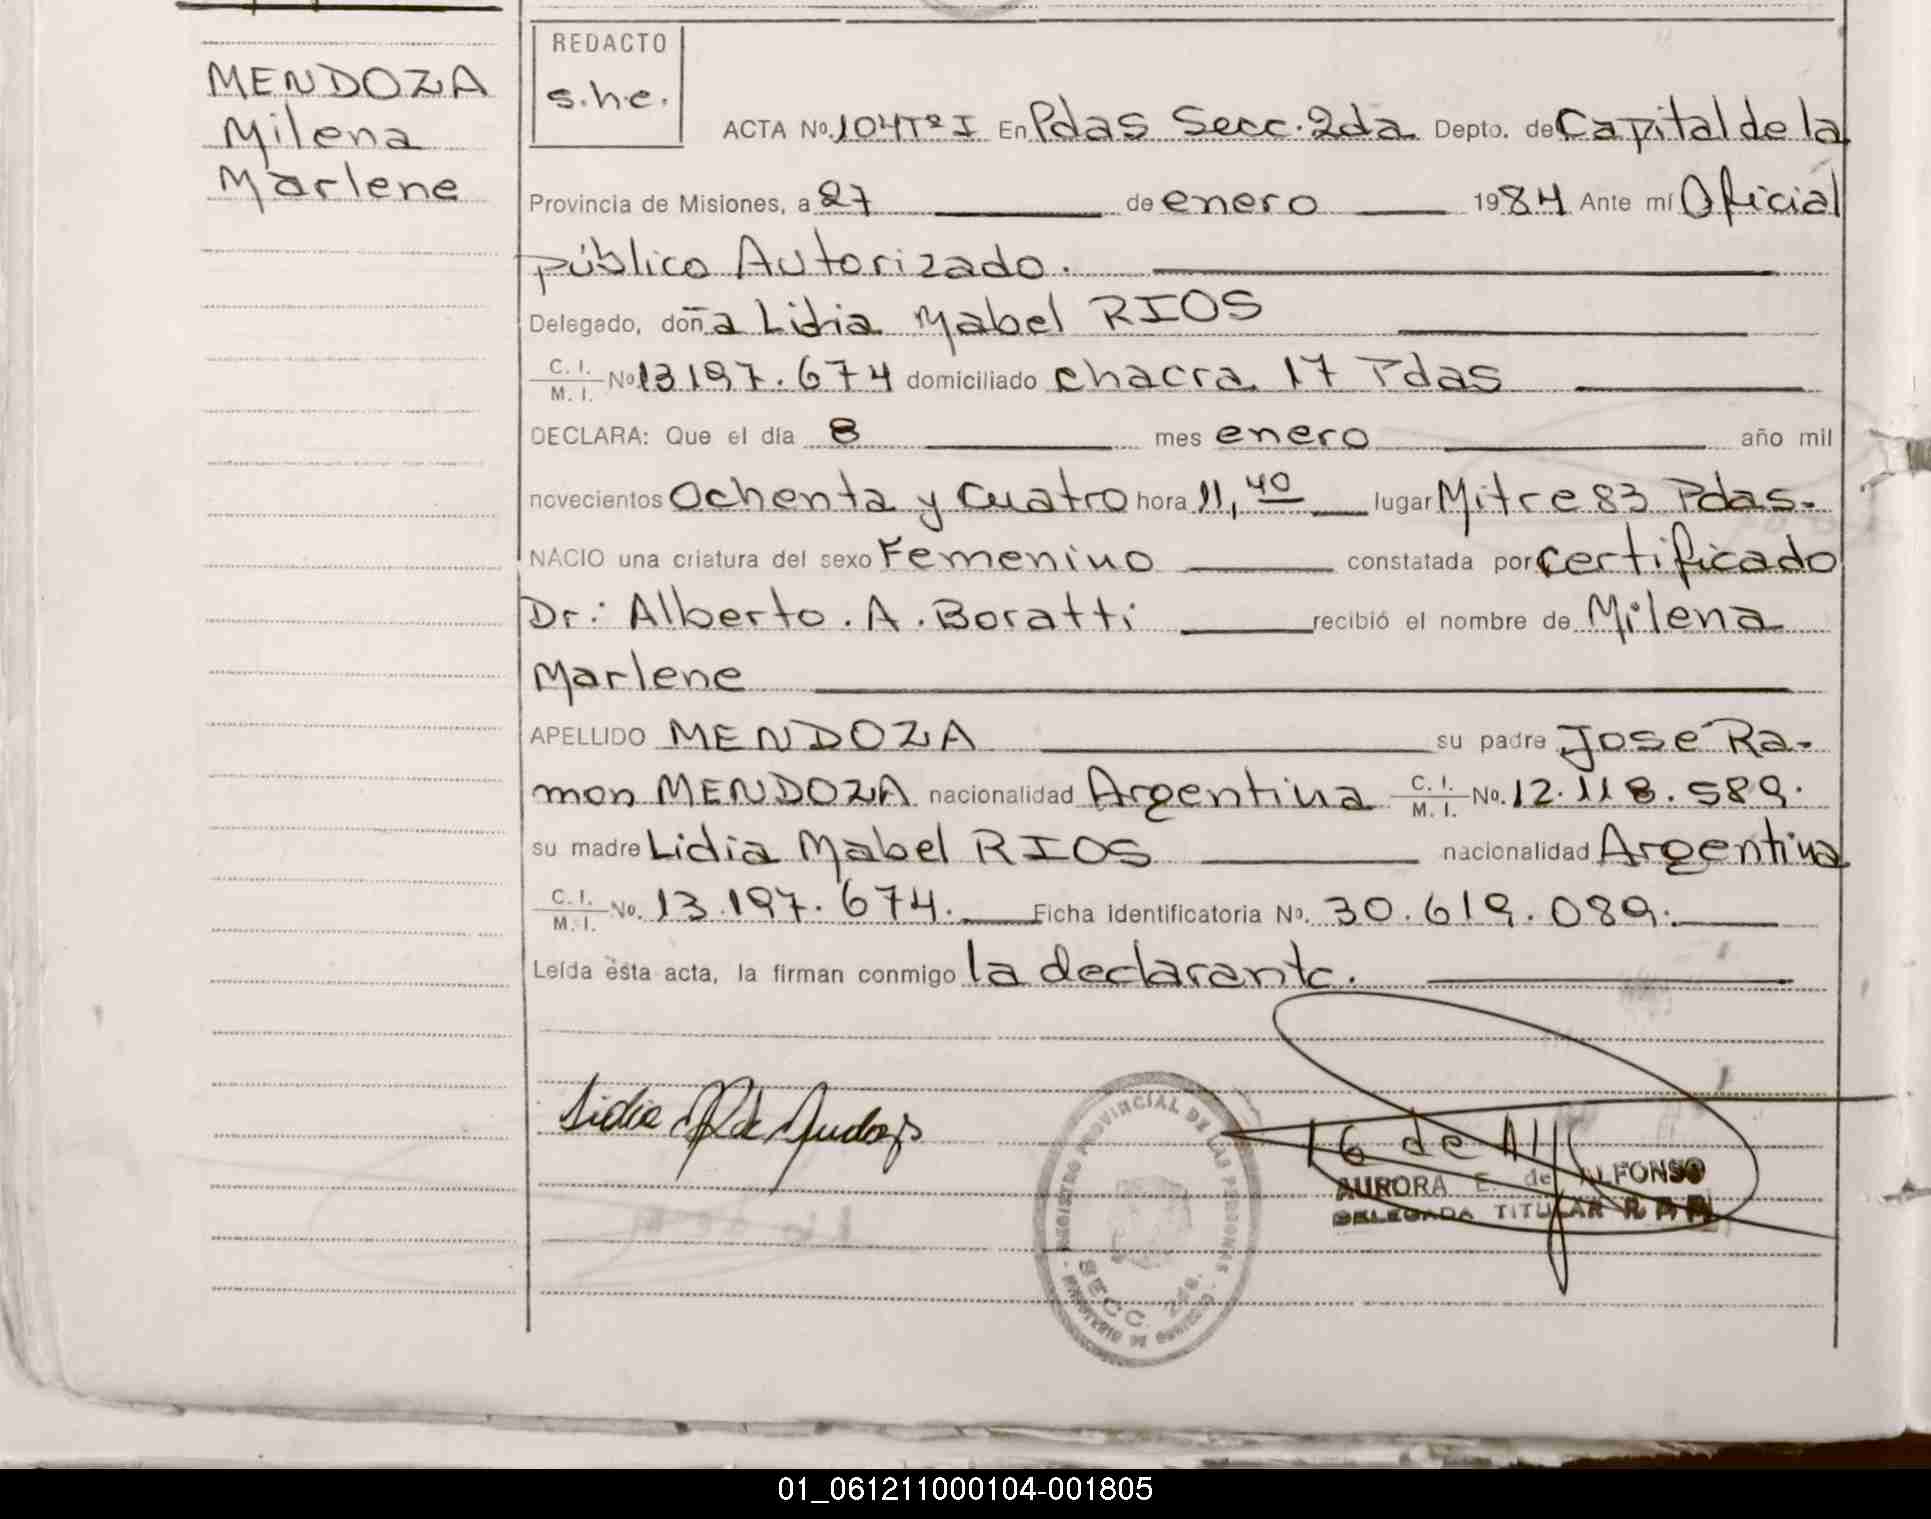 MENDOZA
Milena
Marlene
REDACTO
s.h.e.
ACTA No. 104Tº I En Pdas Secc. 2da Depto. de Capital de la
Provincia de Misiones, a 27 de enero 1984 Ante mí Oficial
público Autorizado.
Delegado, doña Lidia Mabel RIOS
C. I. M. I. No 13197.674 domiciliado chacra 17 Pdas
DECLARA: Que el día 8 mes enero año mil
novecientos Ochenta y Cuatro hora 11,40 lugar Mitre 83 Pdas-
NACIO una criatura del sexo Femenino constatada por certificado
Dr: Alberto. A. Boratti recibió el nombre de Milena
Marlene
APELLIDO MENDOZA su padre Jose Ra-
mon MENDOZA nacionalidad Argentina C. I. M. I. No. 12.118.589.
su madre Lidia Mabel RIOS nacionalidad Argentina
C. I. M. I. No. 13.197.674. Ficha identificatoria No. 30.619.089.
Leída esta acta, la firman conmigo la declarante.
Lidia R de
REGISTRO PROVINCIAL DE LAS PERSONAS
SECC. 2da.
MINISTERIO DE GOBIERNO
AURORA E. de ALFONSO
DELEGADA TITULAR R. P. P.
01_061211000104-001805